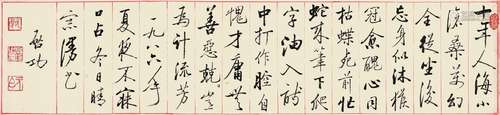 十年人海小
沧桑万幻
全从坐后
忘身似沐猴
冠愈丑心同
枯蝶死前忙
蛇来笔下爬
字油入诗
中打作腔自
愧才庸无
善恶兢兢
为计流芳
一九八六年
夏夜不寐
口占冬日晴
窗漫书
启功